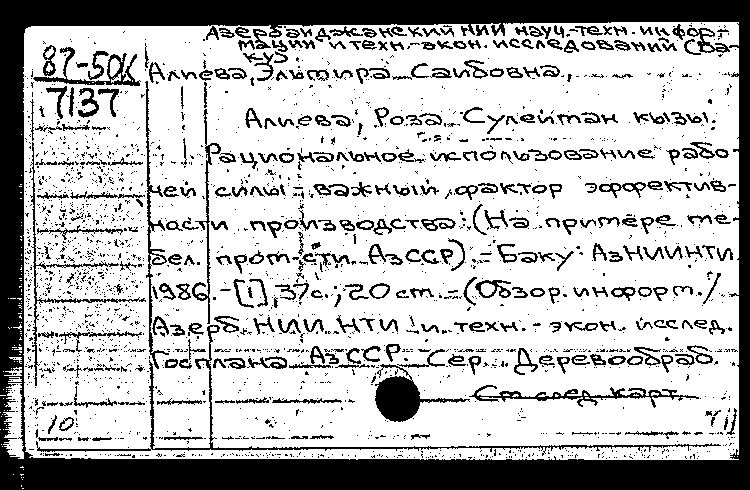 Азербайджанский НИИ науч.-техн. инфор-
мации и техн.-экон. исследований (Ба-
ку).
87-50К
7137
Алиева, Эльмира Саибовна,
Алиева, Роза Сулейман кызы.
Рациональное использование рабо-
чей силы - важный фактор эффектив-
ности производства: (На примере ме-
бел. пром-сти АзССР). - Баку: АзНИИНТИ
1986. - [1], 37 с.; 20 см. - (Обзор. информ. /
Азерб. НИИ НТИ и техн. - экон. исслед.
Госплана АзССР. Сер. Деревообраб.
См след карт.
10